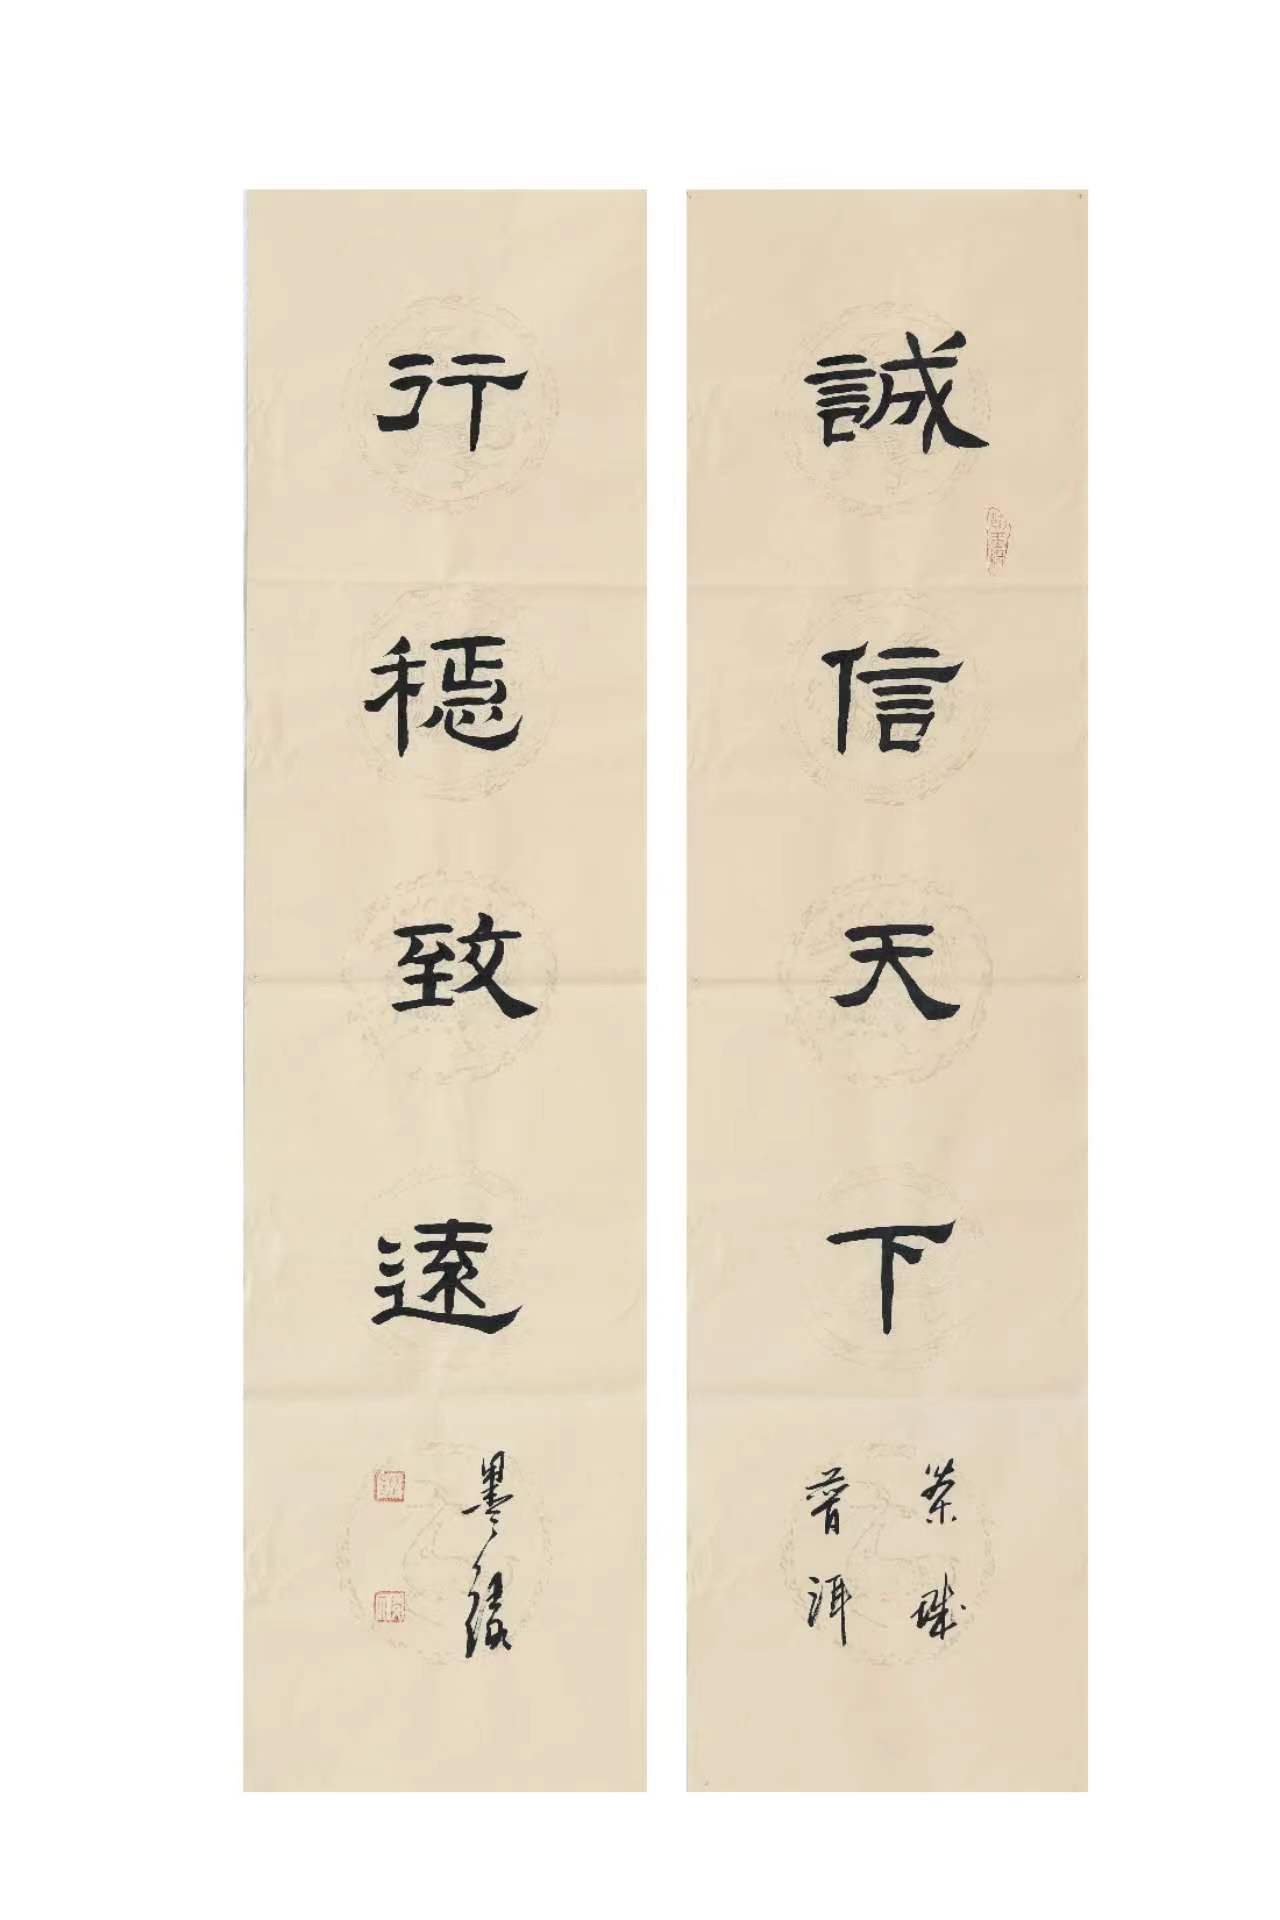 誠信天下
茶城
普洱
行穩致遠
墨缘